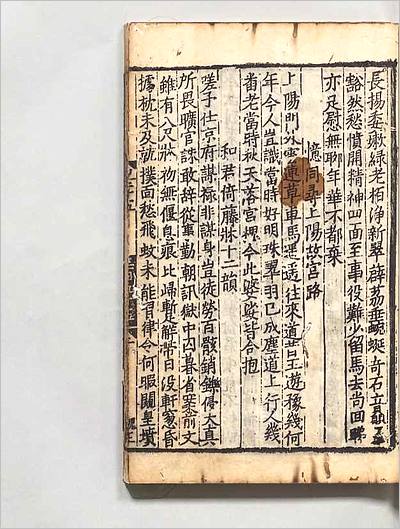 長楊垂嫩綠老栢淨新翠薜荔垂蜿蜒奇石立
豁然愁憤開精神四面至事役難少留馬去尚回睇
亦足慰無聊年華不都棄
憶同尋上陽故宮路
上陽門外雲連草車馬遲遲往來道昔王遊豫幾何
年今人豈識當時好明珠翠羽已成塵道上行人幾
番老當時秋天落宮槐今此婆娑皆合抱
和君倚藤牀十二韻
嗟予仕京府謀禄非謀身豈徒勞百骸銷鑠侵天真
所畏曠官誅敢辭從事勤朝訊獄中囚暮省案前文
雖有八尺牀初無偃息痕比歸暫解帶日没軒窓昏
攜枕未及就撲面愁飛蚊未能習律令何暇闚皇墳